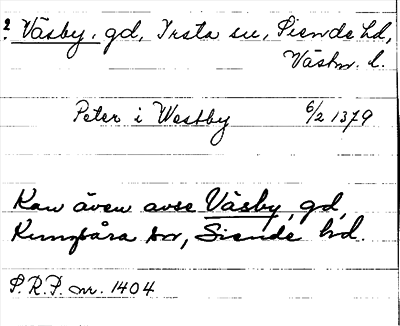 2. Väsby, gd, Irsta sn, Siende hd,
Västm. l.
Peter i Westby 6/2 1379
Kan även avse Väsby, gd,
Kungsåra sn, Siende hd.
S.R.P. nr. 1404